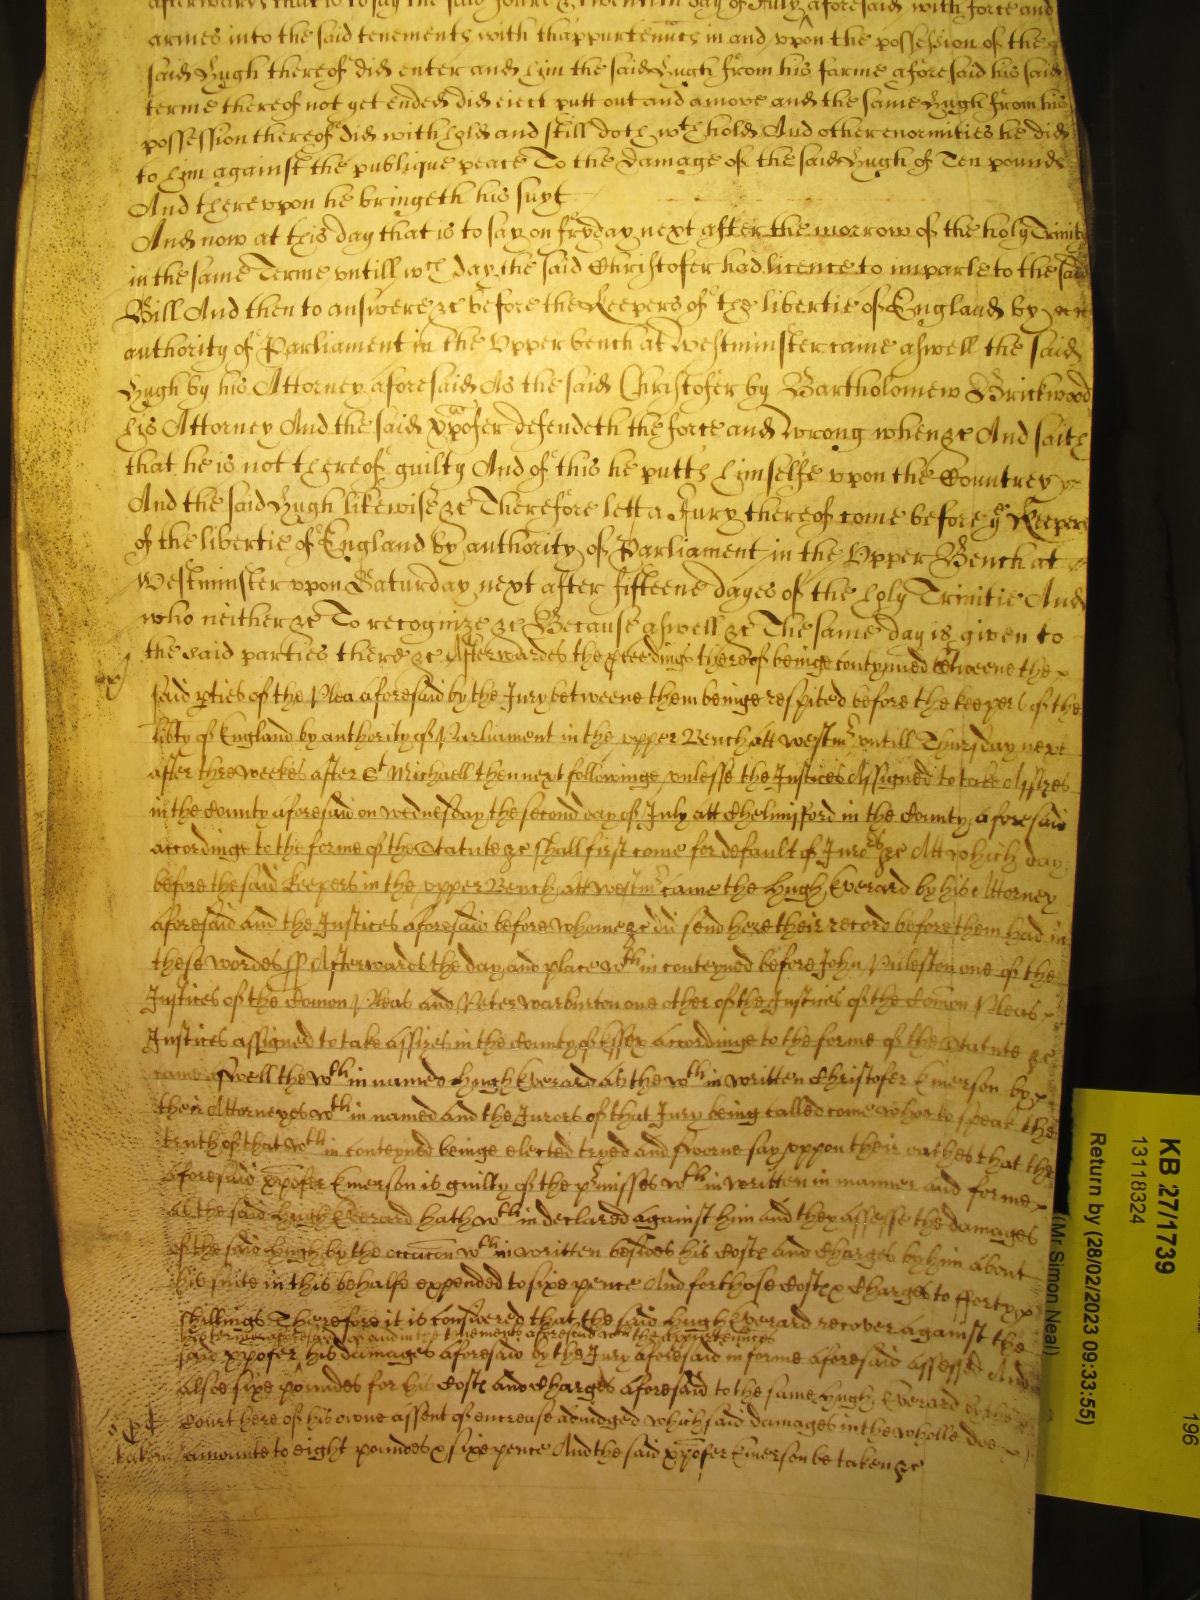 afterwards that is to say the said twentith day of July aforesaid with force and
armes into the said tenements with thappurtenncs in and vpon the possession of the
said Hugh thereof did enter and him the said Hugh from his farme aforesaid his said
terme thereof not yet ended did eiect putt out and amove and the same Hugh from his
possession thereof did withhold and still doth wth hold And other enormities he did
to him against the publique peace To the damage of the said Hugh of Ten pounds
And therevpon he bringeth his suyt
And now at this day that is to say on fryday next after the morrow of the holy Trinity
in the same Terme vntill wch day the said Christofer had licence to imparle to the said
Bill And then to answere &c before the Keepers of the libertie of England by
authority of Parliament in the Vpper bench at Westminster came aswell the said
Hugh by his Attorney aforesaid As the said Christofer by Bartholomew Brickwood
his Attorney And the said Xpofer defendeth the force and wrong when &c And saith
that he is not thereof guilty And of this he putts himselfe vpon the Countrey
And the said Hugh likewise &c Therefore lett a Jury thereof come before ye Keepers
of the libertie of England by authority of Parliament in the Vpper Bench at
Westminster vpon Saturday next after fifteene dayes of the holy Trinitie And
who neither &c To recognize &c Because aswell &c The same day is given to
the said parties there &c Afterwardes the pceedings thereof beinge contynued betweene the
said pties of the Plea aforesaid by the Jury betweene them beinge respited before the keepers of the
libty of England by authority of Parliament in the vpper Bench att Westmr vntill Thursday next
after three weekes after St Michaell then next followinge vnlesse the Justices Assigned to take Assizes
in the County aforesaid on Wednesday the second day of July att Chelmsford in the County aforesaid
accordinge to the forme of the Statute &c shall first come for default of Jurors &c Att which day
before the said keepers in the vpper Bench att westmr came the Hugh Everard by his Attorney
aforesaid and the Justices aforesaid before whome &c did send here their record before them had in
these wordes ss Afterwards the day and place wthin conteyned before John Puleston one of the
Justices of the Comon Pleas and Peter Warburton one other of the Justices of the Comon Pleas
Justices assigned to take assizes in the County of Essex accordinge to the forme of the Statute &c
came aswell the wthin named Hugh Everard as the wthin written Christofer Emerson by
their Attorneyes wthin named and the Jurors of that Jury being called come who to speak the
truth of that wthin conteyned beinge elected tryed and sworne say vppon their oathes that the
aforesaid Xpofer Emerson is guilty of the pmisses wthin written in manner and forme
as the said Hugh Everard hath wthin declared against him and they assesse the damages
of the said Hugh by the occacon wthin written besides his Costs and Charges by him about
his suite in this behalfe expended to sixe pence And for those Costs & Charges to fforty
shillings Therefore it is consdered that the said Hugh Everard recover against the
his terme aforesaid of and in the tenements aforesaid with the appurtenncs
said Xpofer his damages aforesaid by the Jury aforesaid in forme aforesaid assessed And
alsoe sixe poundes for his Costs and Charges aforesaid to the same Hugh Everard by the
Court here of his owne assent of encrease adiudged which said damages in the wholle doe
amounte to eight poundes & sixe pence And the said Xpofer Emerson be taken &c
KB 27/1739
13118324
Return by (28/02/2023 09:33:55)
(Mr Simon Neal)
196